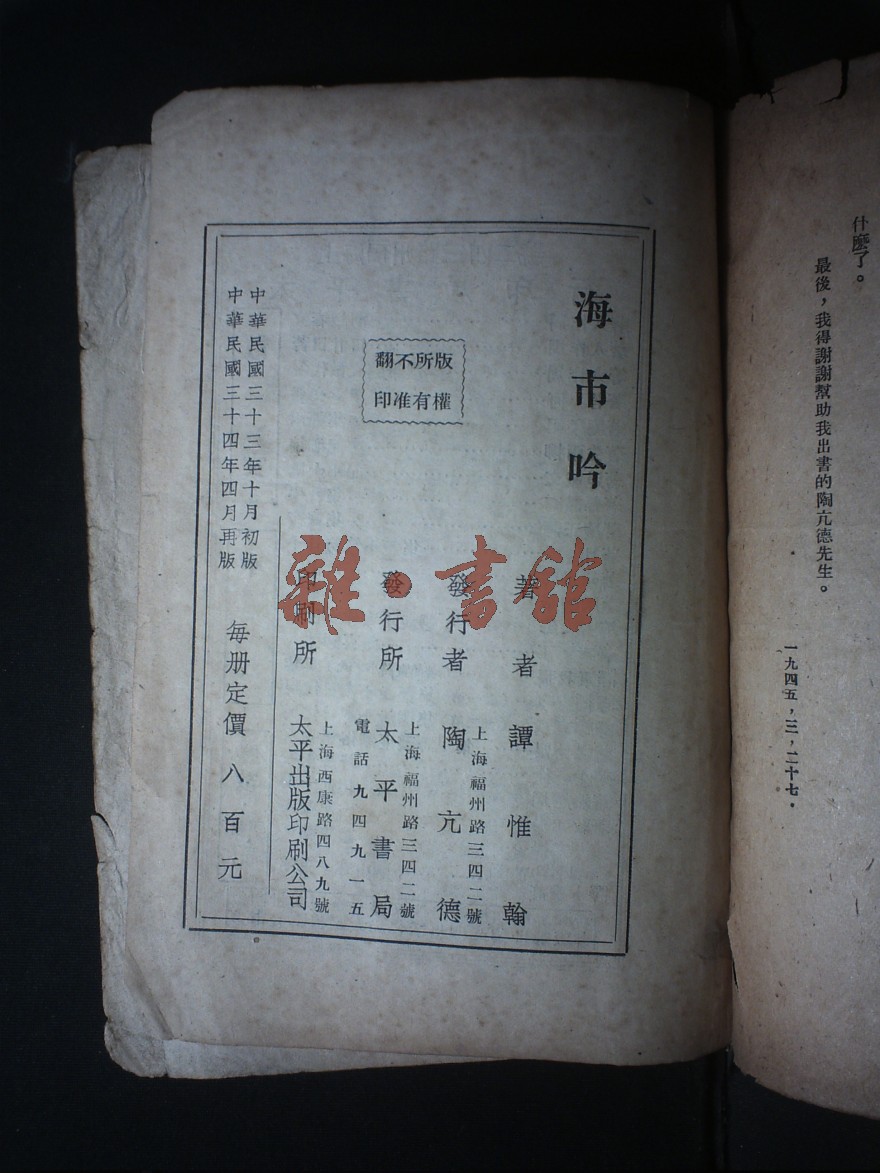 什麼了。
最後，我得謝謝幫助我出書的陶亢德先生。
一九四五，三，二十七。
海市吟
版權
所有
不准
翻印
著者 譚惟翰
上海福州路三四二號
發行者 陶亢德
上海福州路三四二號
發行所 太平書局
電話九四九一五
上海西康路四八九號
印刷所 太平出版印刷公司
中華民國三十三年十月初版
中華民國三十四年四月再版
每册定價 八百元
雜·書館